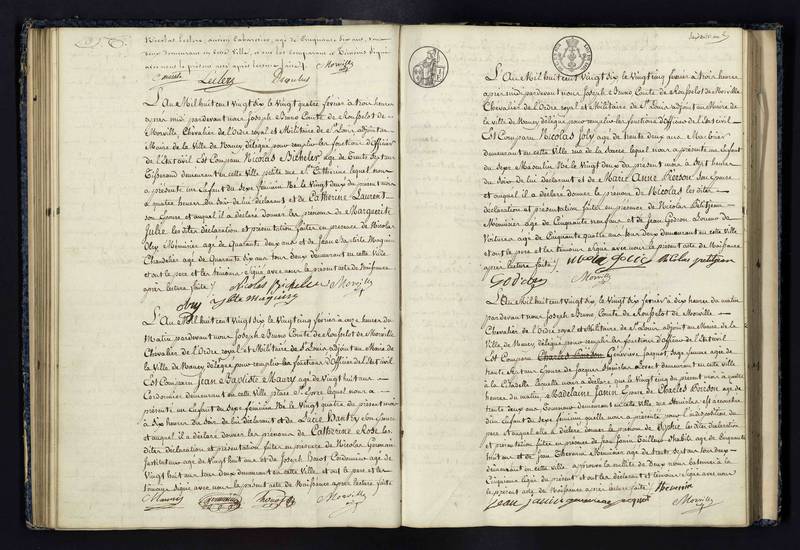 Nicolas Leclerc, ancien Cabaretier, agé de Cinquante dix ans, tous
deux demeurant en cette Ville, et ont les Comparant et Témoins signé
avec nous le présent acte après lecture faite /.
Leclerc Morville
L'An Mil huit cent Vingt six le Vingt quatre février à trois heures
après midi pardevant nous Joseph Bruno Comte de Rousselot de
Morville, Chevalier de l'Ordre royal et Militaire de St Louis adjoint au
Maire de la Ville de Nancy délégué pour remplir les fonctions d'Officier
de l'Etat civil Est Comparu Nicolas Bicheler agé de Trente Sept ans
Tisserand demeurant en cette Ville petite rue Ste Catherine lequel nous
a présenté un Enfant du Sexe féminin Né le Vingt deux du présent mois
à quatre heures du Soir de lui déclarant et de Catherine Laurent
son Epouse et auquel il a déclaré donner les prénoms de Marguerite
Julie les dites déclaration et présentation faites en présence de Nicolas
Oby Ménuisier agé de Quarante deux ans et de Jean de Maguin
Chandelier agé de Quarante six ans tous deux demeurant en cette Ville
et ont le père et les témoins Signé avec nous le présent acte de Naissance
après lecture faite /. Nicolas Bicheler Morville
oby
L'An Mil huit cent Vingt six le Vingt cinq février à onze heures du
Matin pardevant nous Joseph Bruno Comte de Rousselot de Morville
Chevalier de l'Ordre royal et Militaire de St Louis adjoint au Maire de
la Ville de Nancy délégué pour remplir les fonctions d'Officier de l'Etat civil
Est Comparu Jean Baptiste Maury agé de Vingt huit ans
Cordonnier demeurant en cette Ville place St Epvre lequel nous a
présenté un Enfant du Sexe féminin Né le Vingt quatre du présent mois
à dix heures du Soir de lui déclarant et de Lucie son Epouse
et auquel il a déclaré donner les prénoms de Catherine Rose les
dites déclaration et présentation faites en présence de Nicolas Germain
Instituteur agé de Vingt huit ans et de Joseph Cordonnier agé de
Vingt huit ans tous deux demeurant en cette Ville, et ont le père et les
témoins Signé avec nous le présent acte de Naissance après lecture faite
Maury Morville
L'An Mil huit cent Vingt six le Vingt cinq février à trois heures
après midi pardevant nous Joseph Bruno Comte de Rousselot de Morville
Chevalier de l'Ordre royal et Militaire de St Louis adjoint au Maire de
la ville de Nancy délégué pour remplir les fonctions d'Officier de l'Etat civil
Est Comparu Nicolas Joly agé de trente deux ans Marbrier
demeurant en cette Ville rue de la lequel nous a présenté un Enfant
du Sexe Masculin Né le Vingt deux du présent mois à sept heures
du Soir de lui déclarant et de Marie Anne Pierson Son Epouse
et auquel il a déclaré donner le prénom de Nicolas les dites
déclaration et présentation faites en présence de Nicolas Petitjean
Ménuisier agé de Cinquante neuf ans et de Jean Loueur de
Voitures agé de Cinquante quatre ans tous deux demeurant en cette Ville
et ont le père et les témoins signé avec nous le présent acte de Naissance
après lecture faite /. Nicolas Joly Nicolas petitjean
Morville
L'An Mil huit cent Vingt six le Vingt cinq février à dix heures du matin
pardevant nous Joseph Bruno Comte de Rousselot de Morville
Chevalier de l'Ordre royal et Militaire de St Louis adjoint au Maire de la
Ville de Nancy délégué pour remplir les fonctions d'Officier de l'Etat civil
Est Comparu Geneviève Jacquot, Sage femme agée de
trente sept ans Epouse de Jacques demeurant en cette ville
à la Citadelle laquelle nous a déclaré que le Vingt cinq du présent mois à quatre
heures du matin, Madelaine Janin Epouse de Charles agé de
trente deux ans demeurant en cette Ville rue est accouchée
d'un Enfant du Sexe féminin qu'elle nous a présenté pour l'indisposition du
père et auquel elle a déclaré donner le prénom de Sophie les dites déclaration
et présentation faites en présence de Jean Janin Tailleur d'habits agé de Cinquante
huit ans et de Jean Thevenin Ménuisier agé de trente sept ans tous deux
demeurant en cette ville approuvé la nullité de deux mots batonnés à la
Cinquième ligne du présent et ont les déclarant et témoins signé avec nous
le présent acte de Naissance après lecture faite / Thevenin
jean janin genevieve jacquot Morville